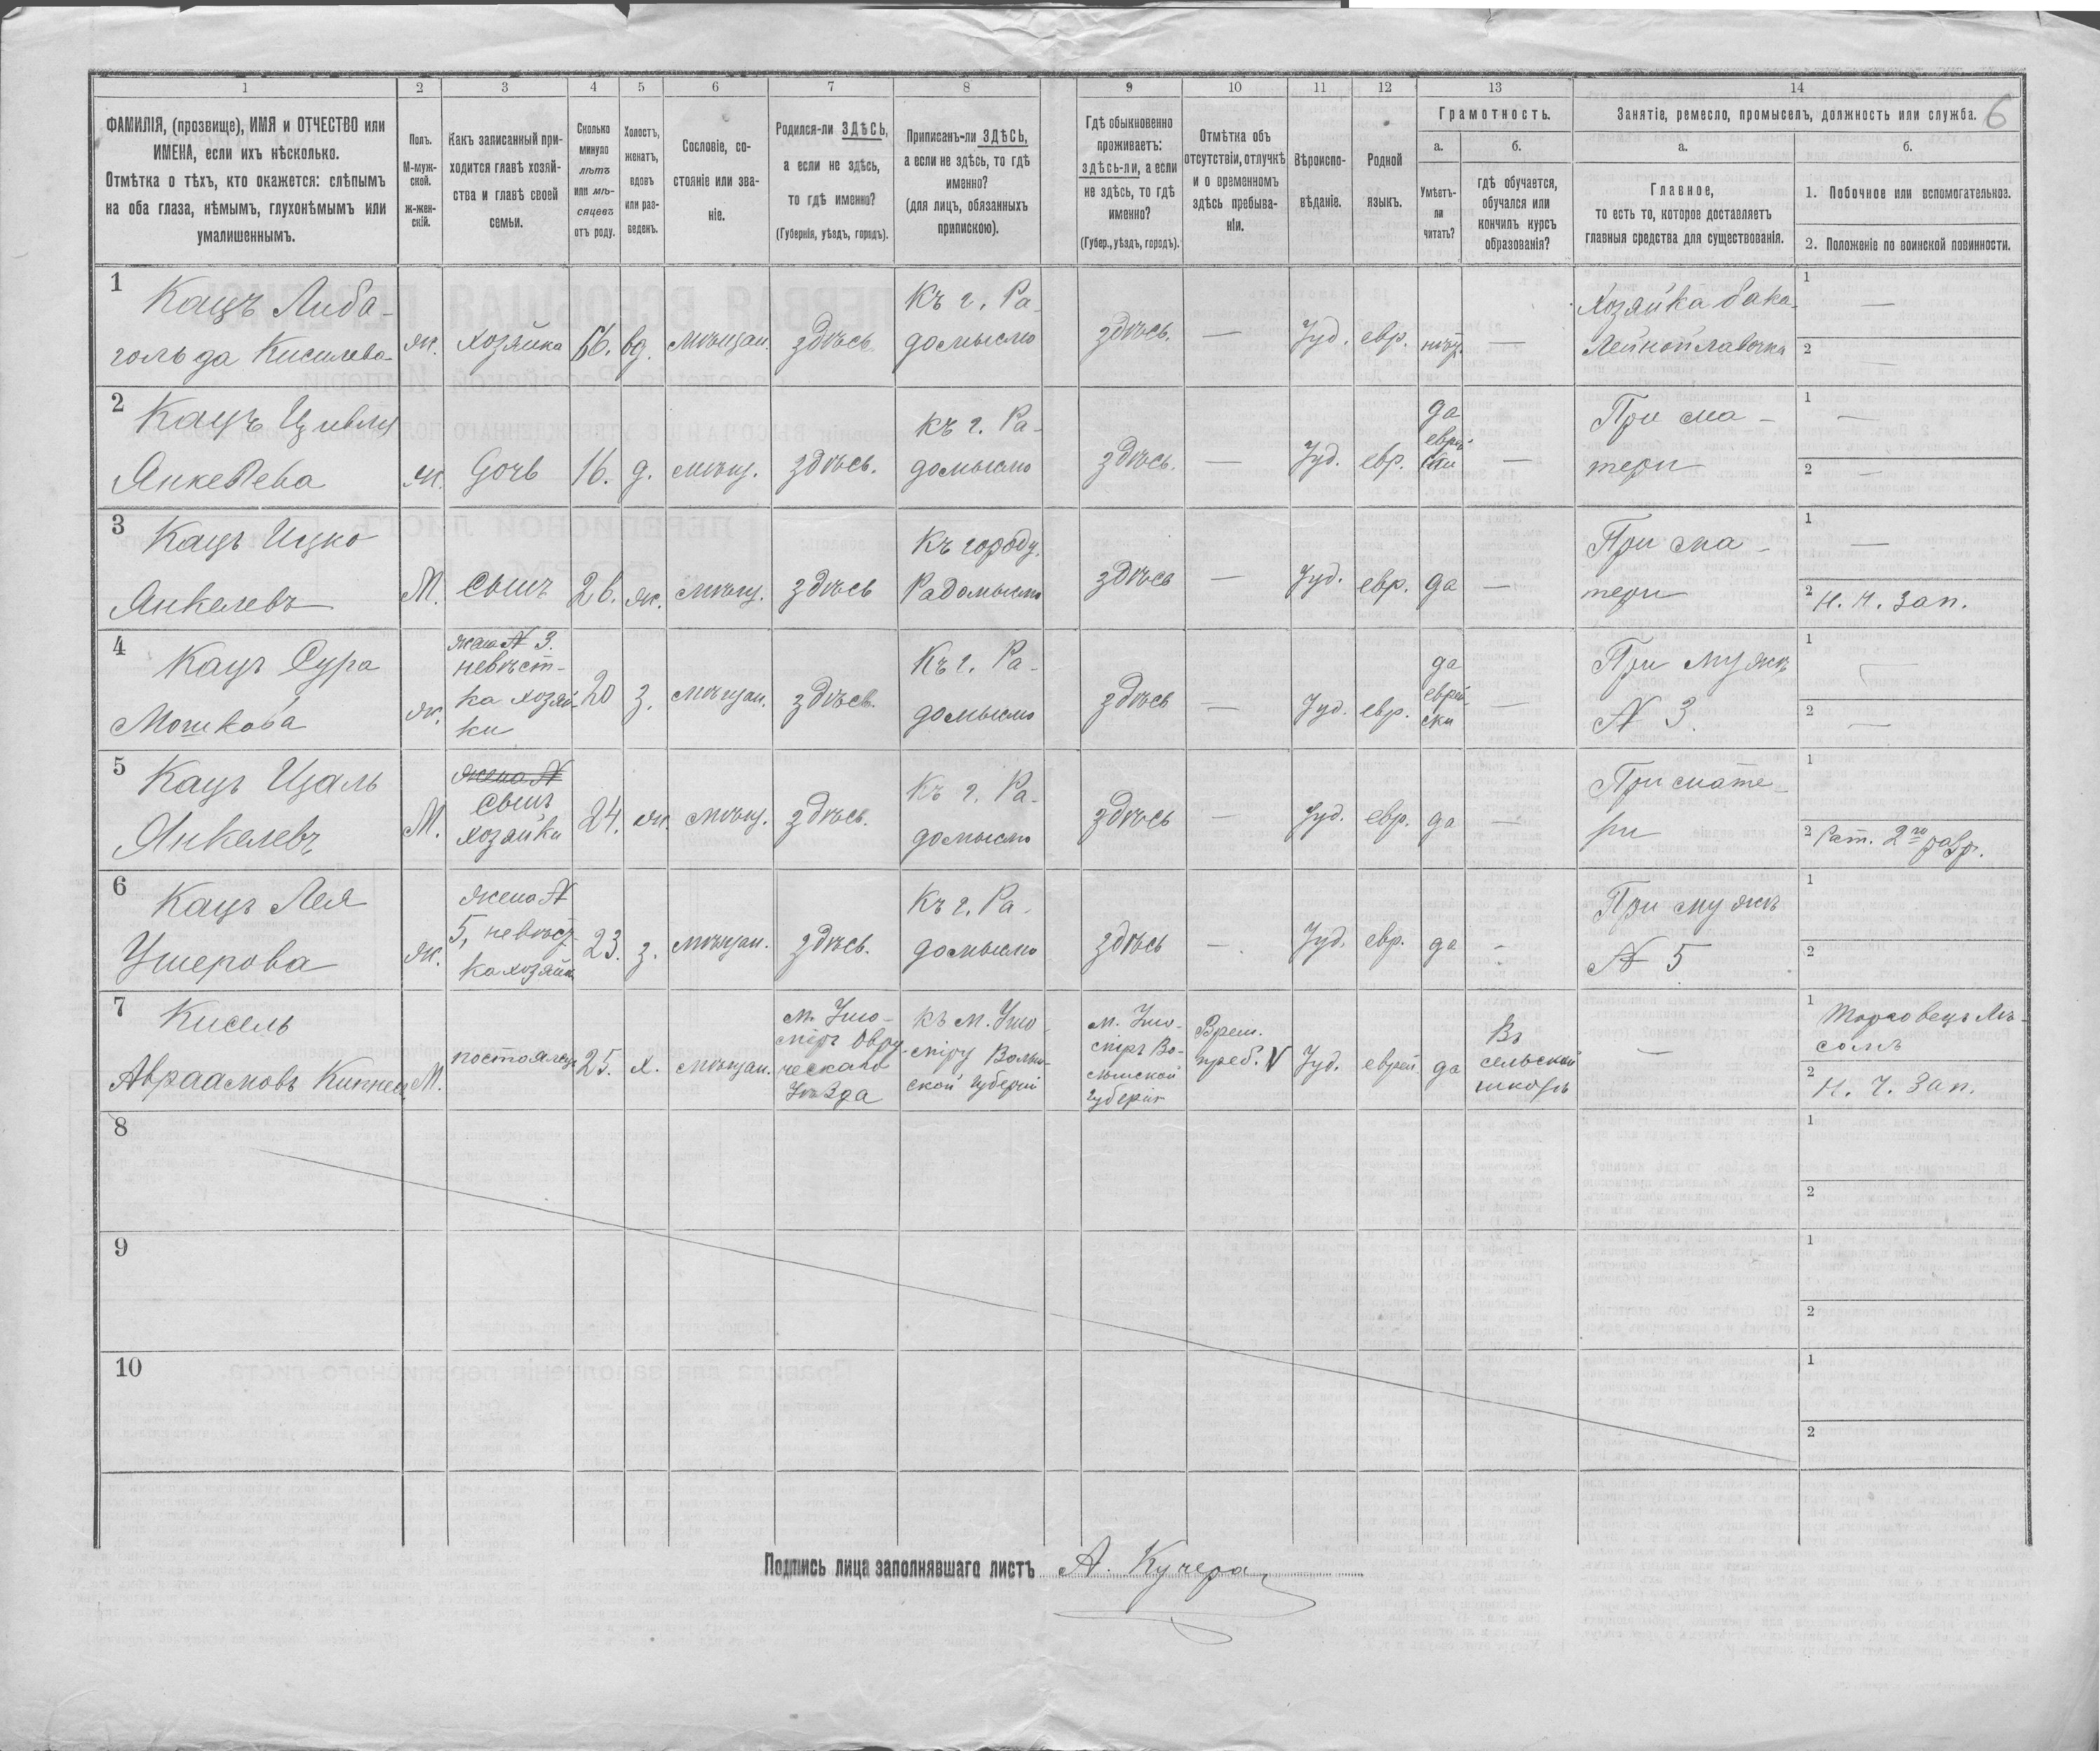 1 2 3 4 5 6 7 8 9 10 11 12 13 14
6
ФАМИЛІЯ, (прозвище), ИМЯ и ОТЧЕСТВО или
ИМЕНА, если ихъ нѣсколько.
Отмѣтка о тѣхъ, кто окажется: слѣпымъ
на оба глаза, нѣмымъ, глухонѣмымъ или
умалишеннымъ.
Полъ.
М-муж-
ской.
ж-жен-
скій.
Какъ записанный при-
ходится главѣ хозяй-
ства и главѣ своей
семьи.
Сколько
минуло
лѣтъ
или мѣ-
сяцевъ
отъ роду.
Холостъ,
женатъ,
вдовъ
или раз-
веденъ.
Сословіе, со-
стояніе или зва-
ніе.
Родился-ли ЗДѢСЬ,
а если не здѣсь,
то гдѣ именно?
(Губернія, уѣздъ, городъ).
Приписанъ-ли ЗДѢСЬ,
а если не здѣсь, то гдѣ
именно?
(для лицъ, обязанныхъ
припискою).
Гдѣ обыкновенно
проживаетъ:
здѣсь-ли, а если
не здѣсь, то гдѣ
именно?
(Губер., уѣздъ, городъ).
Отмѣтка объ
отсутствіи, отлучкѣ
и о временномъ
здѣсь пребыва-
ніи.
Вѣроиспо-
вѣданіе.
Родной
языкъ.
Грамотность.
а.
Умѣетъ-
ли
читать?
б.
гдѣ обучается,
обучался или
кончилъ курсъ
образованія?
Занятіе, ремесло, промыселъ, должность или служба.
а.
Главное,
то есть то, которое доставляетъ
главныя средства для существованія.
б.
1. Побочное или вспомогательное.
2. Положеніе по воинской повинности.
1
Кацъ Либа-
гольда Киселева
ж.
хозяйка
66.
вд.
мѣщан.
здѣсь
Къ г. Ра-
домыслю
здѣсь.
—
Іуд.
евр.
нѣтъ
—
Хозяйка бака-
лейной лавочки
1 —
2 —
2
Кацъ Цивля
Янкелева
ж.
Дочь
16.
д.
мѣщ.
здѣсь.
къ г. Ра-
домыслю
здѣсь.
—
Іуд.
евр.
да
еврей-
ски
—
При ма-
тери
1 —
2 —
3
Кацъ Ицко
Янкелевъ
М.
сынъ
26.
ж.
мѣщ.
здѣсь
Къ городу
Радомыслю
здѣсь
—
Іуд.
евр.
да
—
При ма-
тери
1 —
2 Н. Ч. Зап.
4
Кацъ Сура
Мошкова
ж.
жена № 3.
невѣст-
ка хозяй-
ки
20
з.
мѣщан.
здѣсь.
Къ г. Ра-
домыслю
здѣсь
—
Іуд.
евр.
да
еврей-
ски
—
При мужѣ
№ 3.
1 —
2 —
5
Кацъ Цаль
Янкелевъ
М.
жена №
сынъ
хозяйки
24.
ж.
мѣщ.
здѣсь.
Къ г. Ра-
домыслю
здѣсь
—
Іуд.
евр.
да
—
При мате-
ри
1
2 Рат. 2го разр.
6
Кацъ Лея
Ушерова
ж.
жена №
5, невѣст-
ка хозяйк.
23.
з.
мѣщан.
здѣсь.
Къ г. Ра-
домыслю
здѣсь
—
Іуд.
евр.
да
-
При мужѣ
№ 5
1
2
7
Кисель
Авраамовъ
М.
постоялец
25.
х.
мѣщан.
м. Ушо-
міръ Овру-
ческаго
Уѣзда
къ м. Ушо-
міру Волын-
ской губерніи
м. Ушо-
міръ Во-
лынской
губерніи
Врем.
преб. V
Іуд.
еврей
да
Въ
сельской
школѣ
—
1 Торговецъ лѣ-
сомъ
2 Н. Ч. Зап.
8
1
2
9
1
2
10
1
2
Подпись лица заполнявшаго листъ А. Кучера